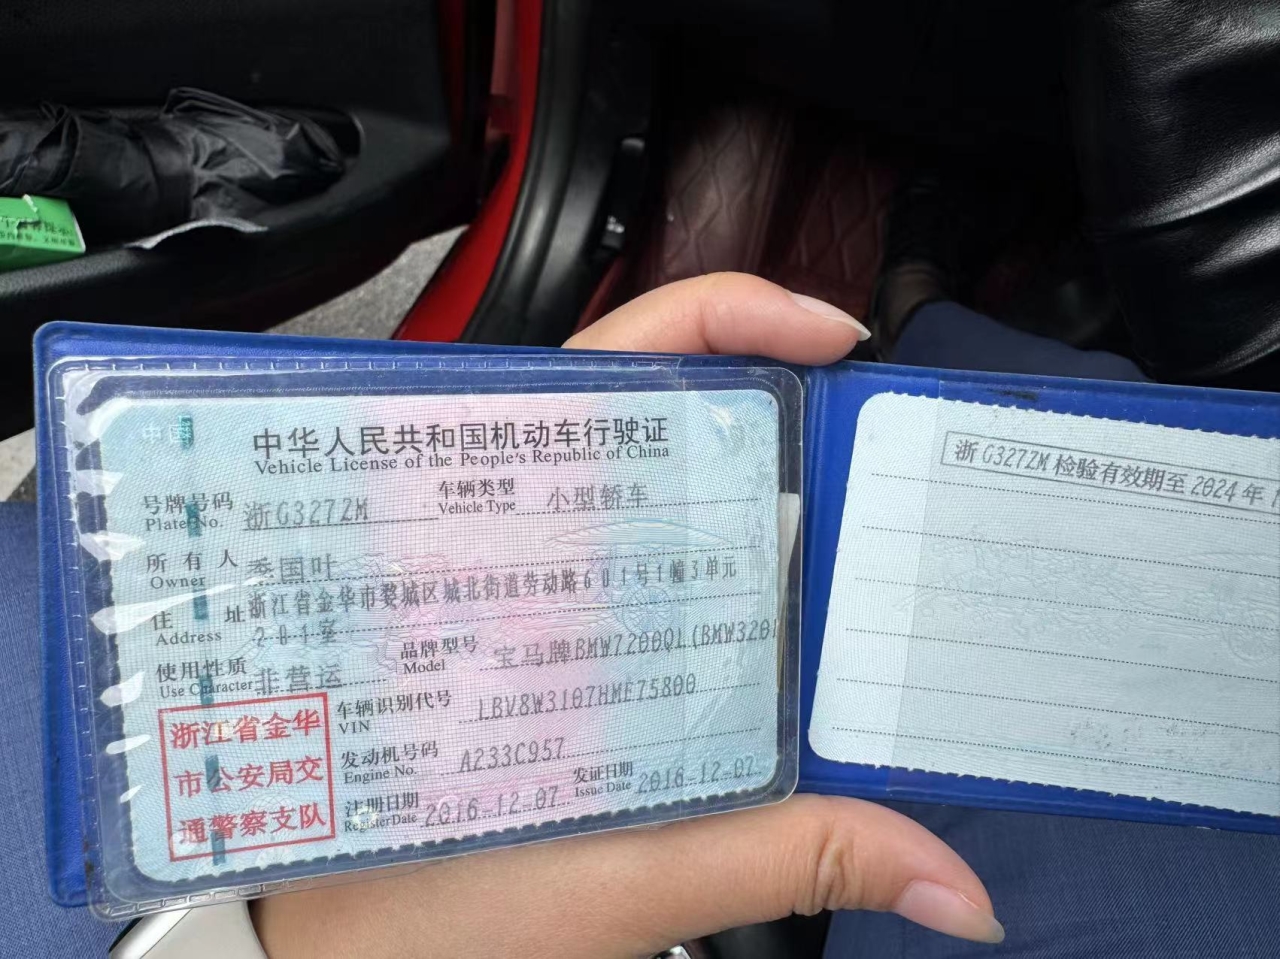 中国
中华人民共和国机动车行驶证
Vehicle License of the People's Republic of China
号牌号码 浙G327ZM 车辆类型 小型轿车
Plate No. Vehicle Type
所有人 季国叶
Owner
住址 浙江省金华市婺城区城北街道劳动路601号1幢3单元
Address 201室
使用性质 非营运 品牌型号 宝马牌BMW7200QL(BMW320
Use Character Model
车辆识别代号 LBV8W3107HME75800
VIN
发动机号码 A233C957
Engine No.
注册日期 2016-12-07 发证日期 2016-12-07
Register Date Issue Date
浙江省金华
市公安局交
通警察支队
浙G327ZM检验有效期至2024年